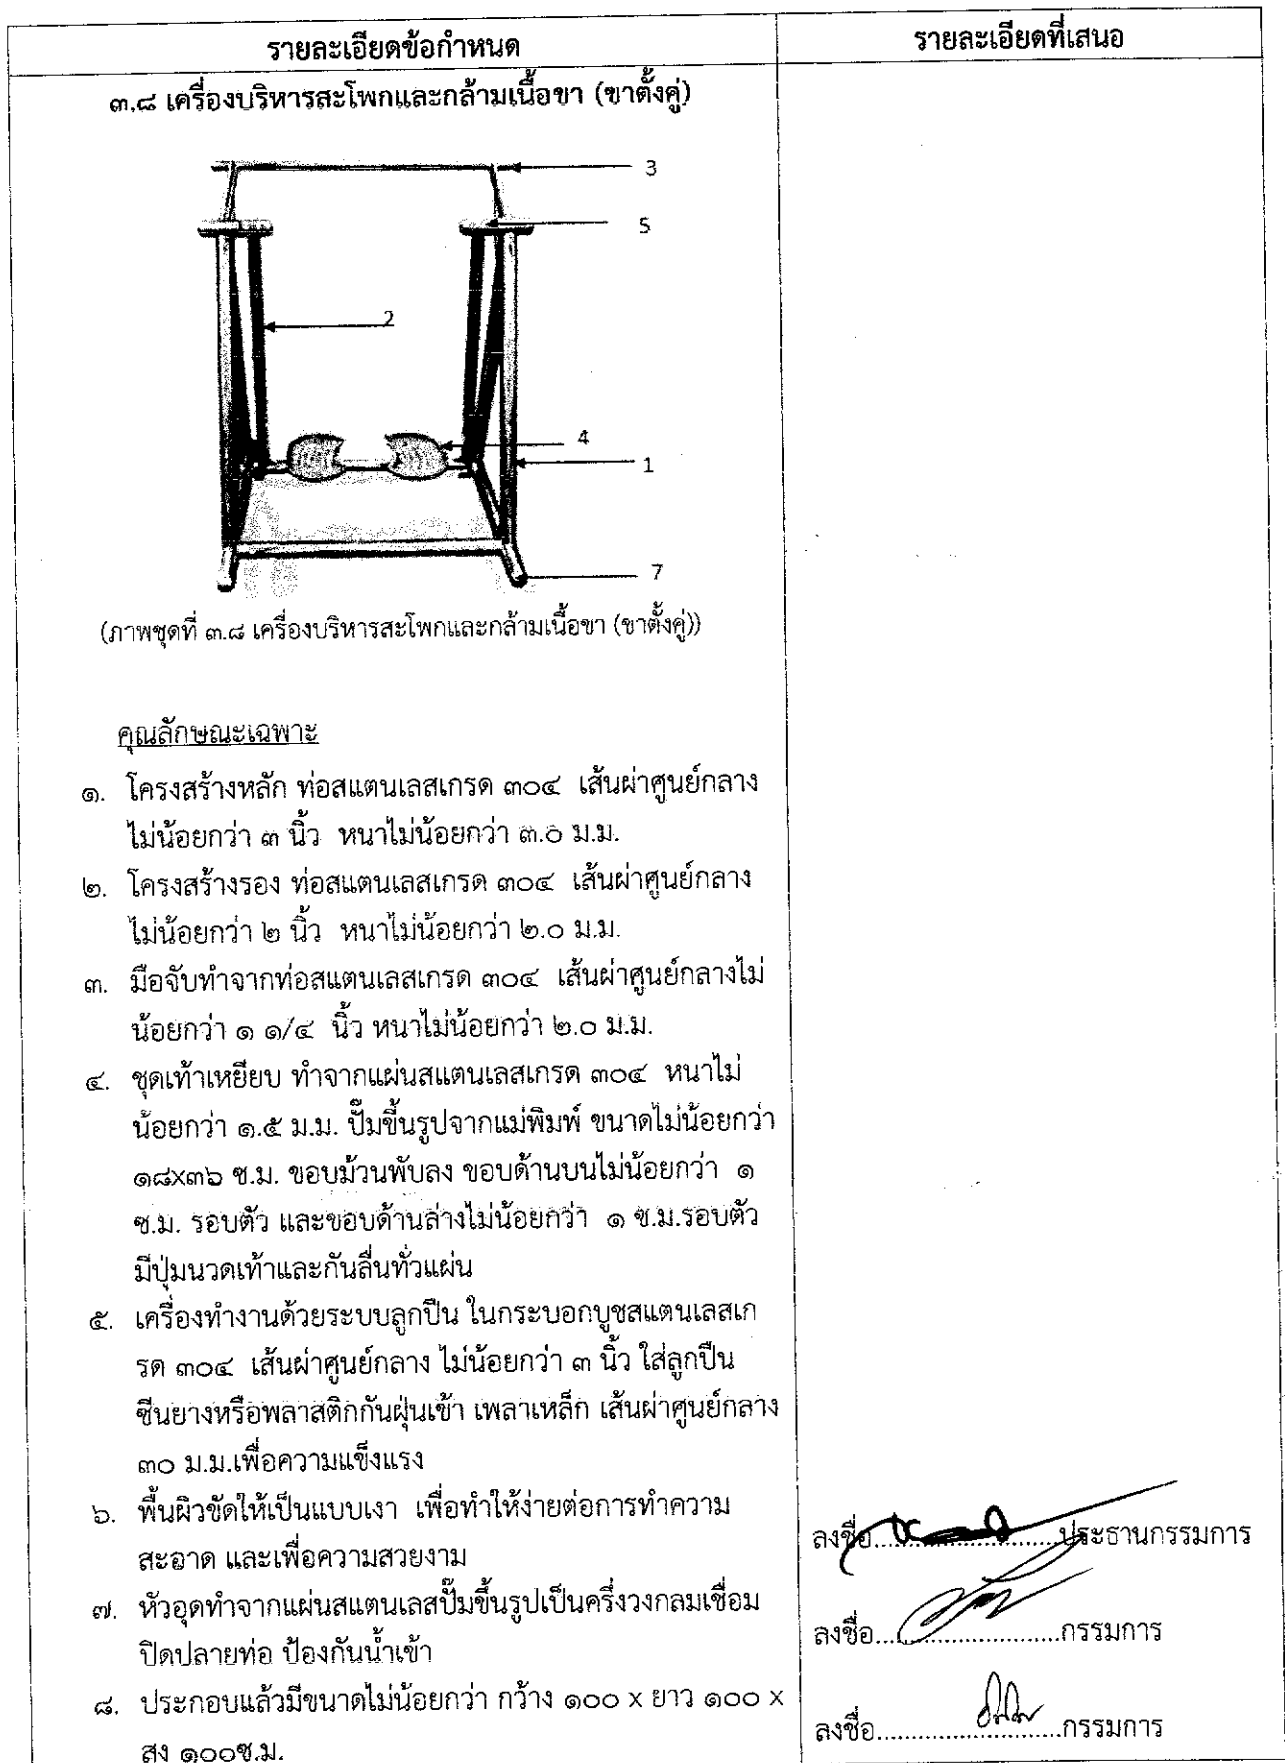 รายละเอียดข้อกำหนด
รายละเอียดที่เสนอ
๓.๘ เครื่องบริหารสะโพกและกล้ามเนื้อขา (ขาตั้งคู่)
3
5
2
4
1
7
(ภาพชุดที่ ๓.๘ เครื่องบริหารสะโพกและกล้ามเนื้อขา (ขาตั้งคู่))
คุณลักษณะเฉพาะ
๑. โครงสร้างหลัก ท่อสแตนเลสเกรด ๓๐๔ เส้นผ่าศูนย์กลาง
ไม่น้อยกว่า ๓ นิ้ว หนาไม่น้อยกว่า ๓.๐ ม.ม.
๒. โครงสร้างรอง ท่อสแตนเลสเกรด ๓๐๔ เส้นผ่าศูนย์กลาง
ไม่น้อยกว่า ๒ นิ้ว หนาไม่น้อยกว่า ๒.๐ ม.ม.
๓. มือจับทำจากท่อสแตนเลสเกรด ๓๐๔ เส้นผ่าศูนย์กลางไม่
น้อยกว่า ๑ ๑/๔ นิ้ว หนาไม่น้อยกว่า ๒.๐ ม.ม.
๔. ชุดเท้าเหยียบ ทำจากแผ่นสแตนเลสเกรด ๓๐๔ หนาไม่
น้อยกว่า ๑.๕ ม.ม. ปั๊มขึ้นรูปจากแม่พิมพ์ ขนาดไม่น้อยกว่า
๑๘x๓๖ ซ.ม. ขอบม้วนพับลง ขอบด้านบนไม่น้อยกว่า ๑
ซ.ม. รอบตัว และขอบด้านล่างไม่น้อยกว่า ๑ ซ.ม.รอบตัว
มีปุ่มนวดเท้าและกันลื่นทั่วแผ่น
๕. เครื่องทำงานด้วยระบบลูกปืน ในกระบอกบูชสแตนเลสเก
รด ๓๐๔ เส้นผ่าศูนย์กลาง ไม่น้อยกว่า ๓ นิ้ว ใส่ลูกปืน
ซีนยางหรือพลาสติกกันฝุ่นเข้า เพลาเหล็ก เส้นผ่าศูนย์กลาง
๓๐ ม.ม.เพื่อความแข็งแรง
๖. พื้นผิวขัดให้เป็นแบบเงา เพื่อทำให้ง่ายต่อการทำความ
สะอาด และเพื่อความสวยงาม
๗. หัวอุดทำจากแผ่นสแตนเลสปั๊มขึ้นรูปเป็นครึ่งวงกลมเชื่อม
ปิดปลายท่อ ป้องกันน้ำเข้า
๘. ประกอบแล้วมีขนาดไม่น้อยกว่า กว้าง ๑๐๐ x ยาว ๑๐๐ x
สูง ๑๐๐ซ.ม.
ลงชื่อ..............................ประธานกรรมการ
ลงชื่อ..............................กรรมการ
ลงชื่อ..............................กรรมการ